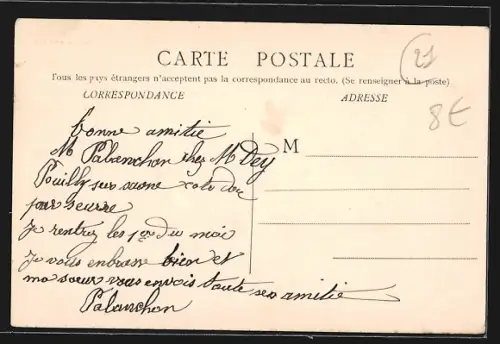 CARTE POSTALE
Tous les pays étrangers n'acceptent pas la correspondance au recto. (Se renseigner à la poste)
CORRESPONDANCE ADRESSE
21
8€
M
bonne amitie
M Pabanchon chez M Dey
Pouilly sur saone cote dor
par seurre
je rentrez les 1er du moi
je vous enbrasse bien et
ma soeur vous envois toute ses amitie
Pabanchon